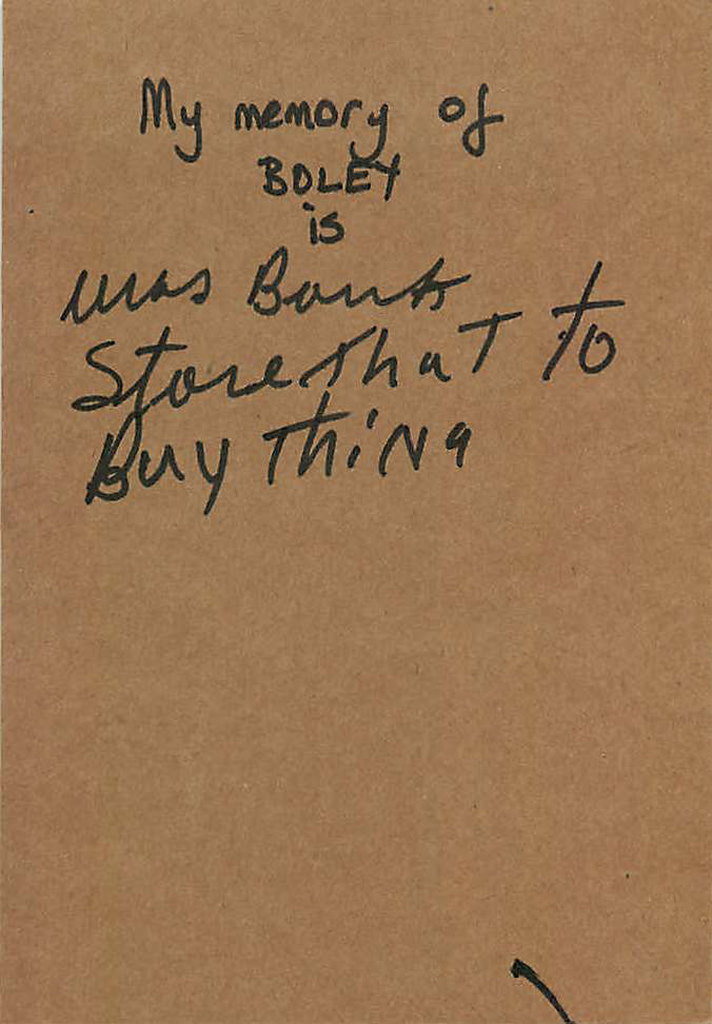 My memory of
BOLEY
is
was Bank
Store that to
Buy thing